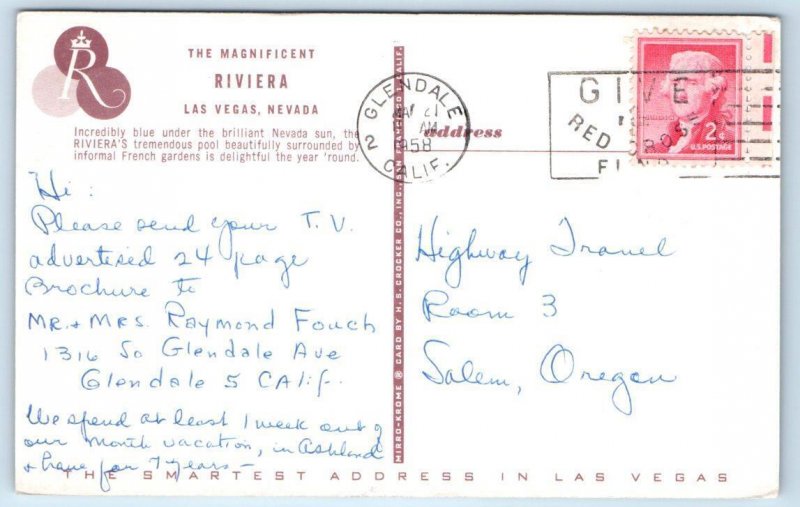 R
THE MAGNIFICENT
RIVIERA
LAS VEGAS, NEVADA
Incredibly blue under the brilliant Nevada sun, the
RIVIERA'S tremendous pool beautifully surrounded by
informal French gardens is delightful the year 'round.
Hi:
Please send your T.V.
advertised 24 page
Brochure to
MR. + MRS. Raymond Fouch
1316 So Glendale Ave
Glendale 5 CALif.
We spend at least 1 week out of
our month vacation, in Ashland
+ have for 7 years -
MIRRO-KROME ® CARD BY H. S. CROCKER CO., INC., SAN FRANCISCO 1, CALIF.
GLENDALE
21
AM
1958
2
CALIF.
address
GIVE
RED CROSS
2¢
U.S. POSTAGE
Highway Travel
Room 3
Salem, Oregon
THE SMARTEST ADDRESS IN LAS VEGAS